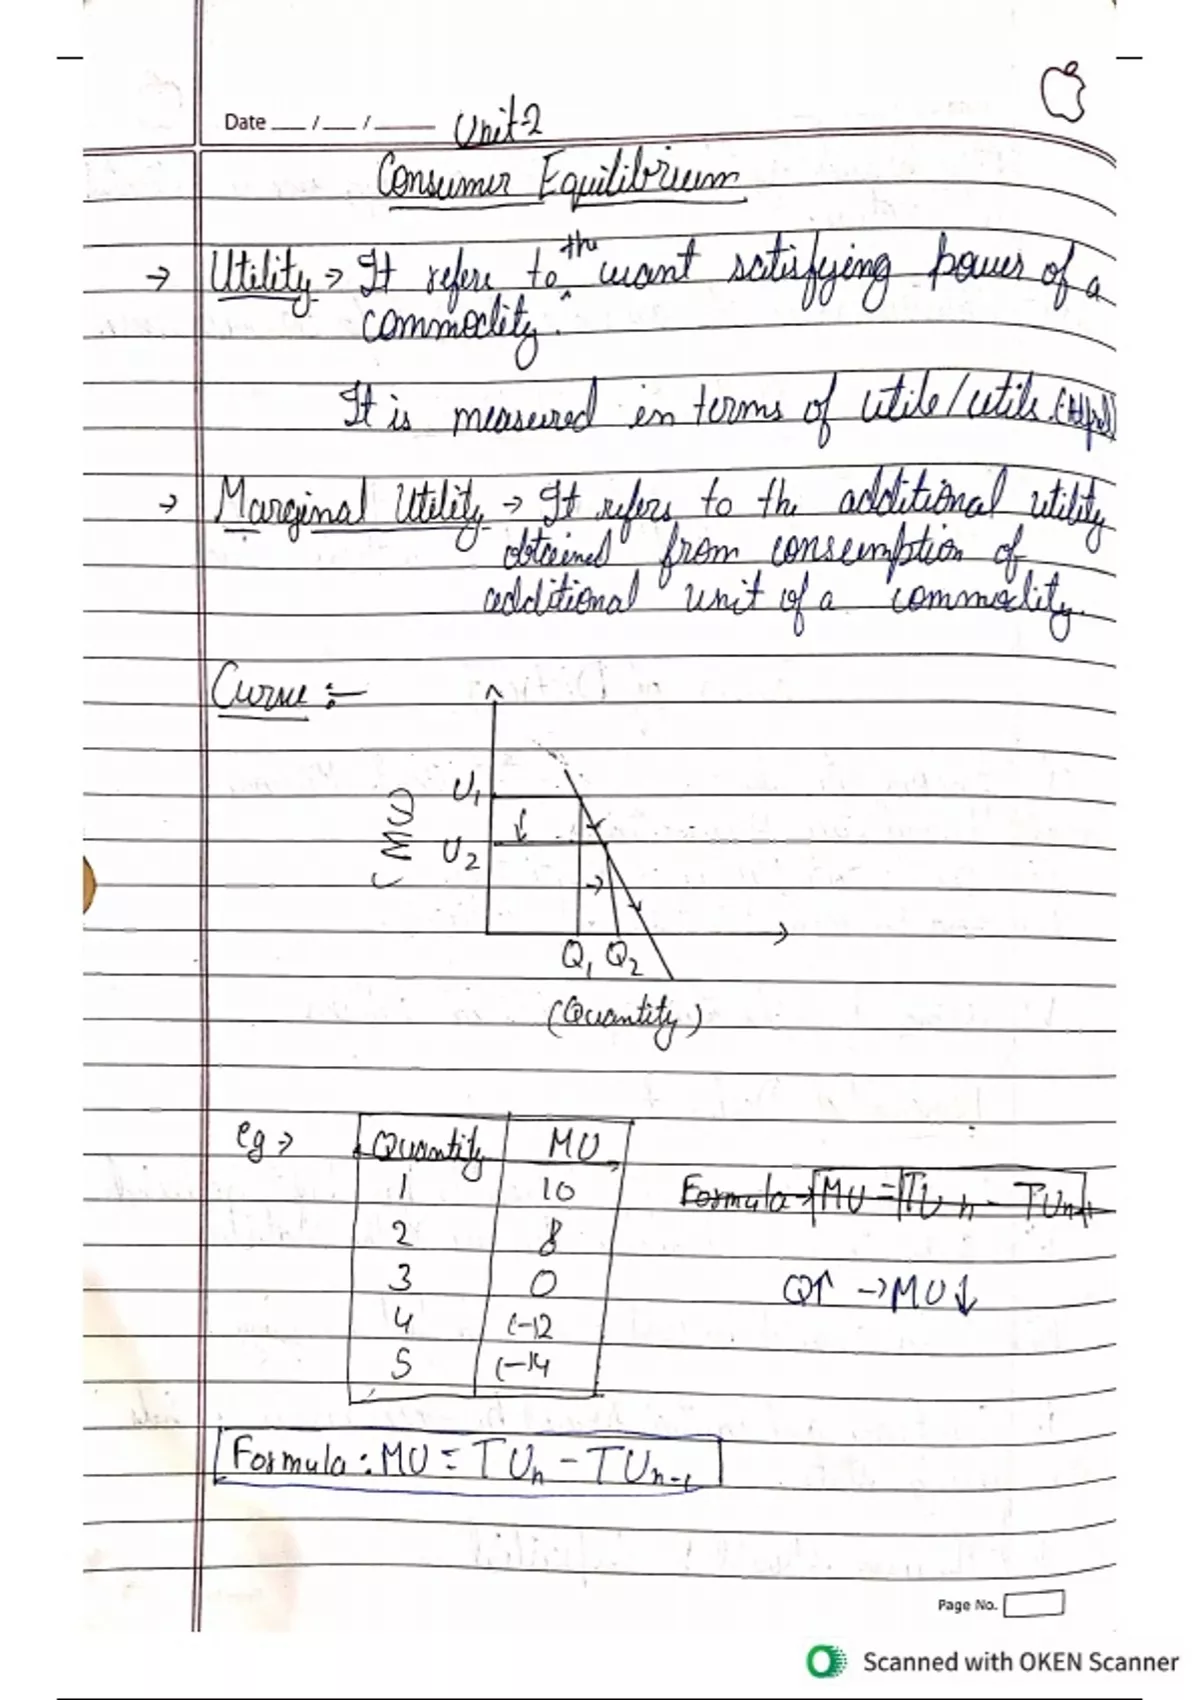 Date __/__/____ Unit-2
Consumer Equilibrium
→ Utility → It refers to the want satisfying power of a
commodity.
It is measured in terms of utile/utils
→ Marginal Utility → It refers to the additional utility
obtained from consumption of
additional unit of a commodity.
Curve :-
(MU)
U1
U2
Q1 Q2
(Quantity)
eg → Quantity MU
1 10
2 8
3 0
4 (-12
5 (-14
Formula → MU = TUn - TUn-1
Q↑ → MU↓
Formula : MU = TUn - TUn-1
Page No.
Scanned with OKEN Scanner